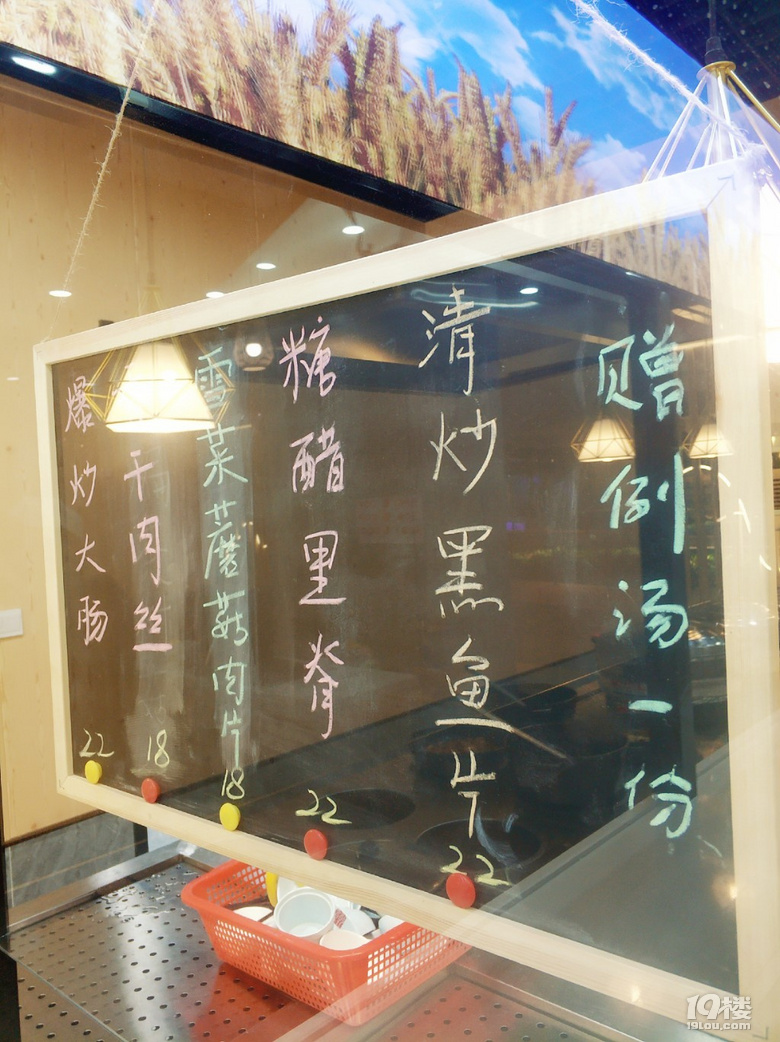 爆炒大肠
22
干肉丝
18
雪菜蘑菇肉片
18
糖醋里脊
22
清炒黑鱼片
22
赠例汤一份
19楼
19lou.com